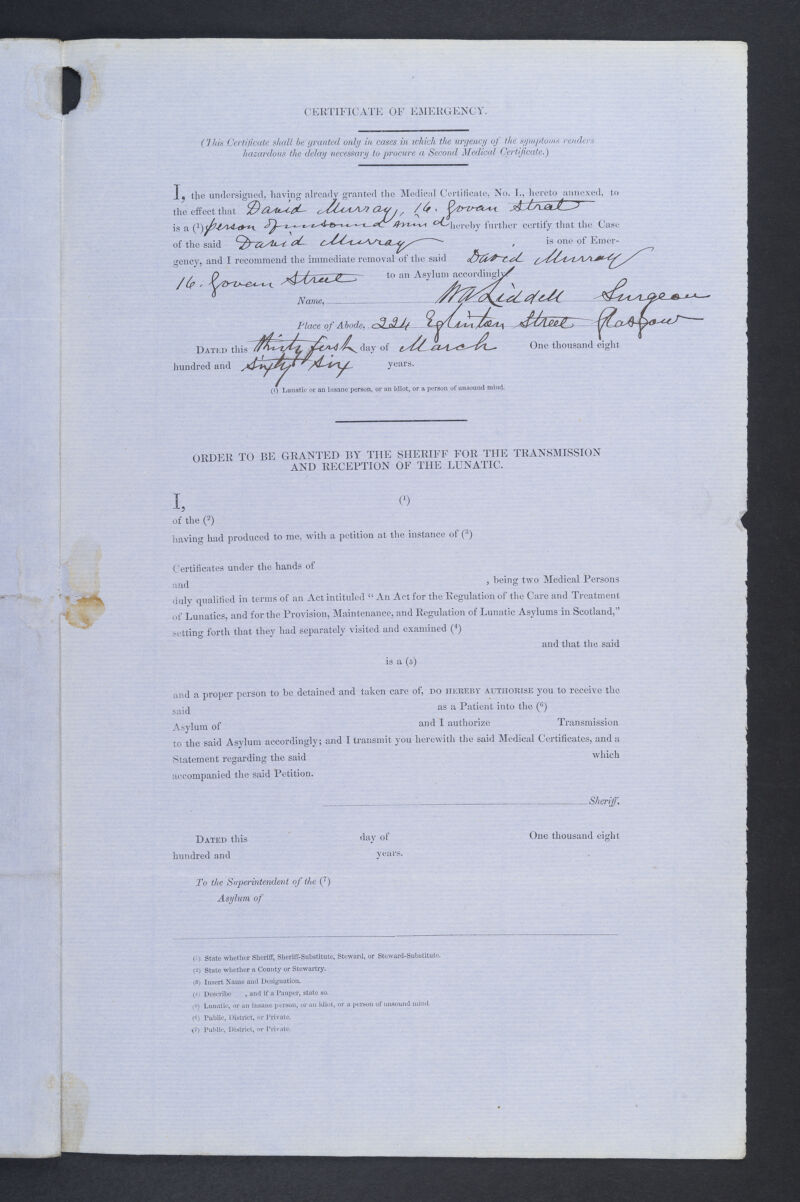 CERTIFICATE OF EMERGENCY.
(This Certificate shall be granted only in cases in which the urgency of the symptoms renders
hazardous the delay necessary to procure a Second Medical Certificate.)
I, the undersigned, having already granted the Medical Certificate, No. I., hereto annexed, to
the effect that David Murray, 16. Govan Street
is a (1) person of unsound mind hereby further certify that the Case
of the said David Murray is one of Emer-
gency, and I recommend the immediate removal of the said David Murray
16. Govan Street to an Asylum accordingly.
Name, Liddell Surgeon
Place of Abode, 224 Eglinton Street Glasgow
DATED this thirty first day of March One thousand eight
hundred and sixty six years.
(1) Lunatic or an insane person, or an idiot, or a person of unsound mind.
ORDER TO BE GRANTED BY THE SHERIFF FOR THE TRANSMISSION
AND RECEPTION OF THE LUNATIC.
I, (1)
of the (2)
having had produced to me, with a petition at the instance of (3)
Certificates under the hands of
and , being two Medical Persons
duly qualified in terms of an Act intituled “ An Act for the Regulation of the Care and Treatment
of Lunatics, and for the Provision, Maintenance, and Regulation of Lunatic Asylums in Scotland,”
setting forth that they had separately visited and examined (4)
and that the said
is a (5)
and a proper person to be detained and taken care of, DO HEREBY AUTHORISE you to receive the
said as a Patient into the (6)
Asylum of and I authorize Transmission
to the said Asylum accordingly; and I transmit you herewith the said Medical Certificates, and a
Statement regarding the said which
accompanied the said Petition.
Sheriff.
DATED this day of One thousand eight
hundred and years.
To the Superintendent of the (7)
Asylum of
(1) State whether Sheriff, Sheriff-Substitute, Steward, or Steward-Substitute.
(2) State whether a County or Stewartry.
(3) Insert Name and Designation.
(4) Describe , and if a Pauper, state so.
(5) Lunatic, or an insane person, or an idiot, or a person of unsound mind.
(6) Public, District, or Private.
(7) Public, District, or Private.